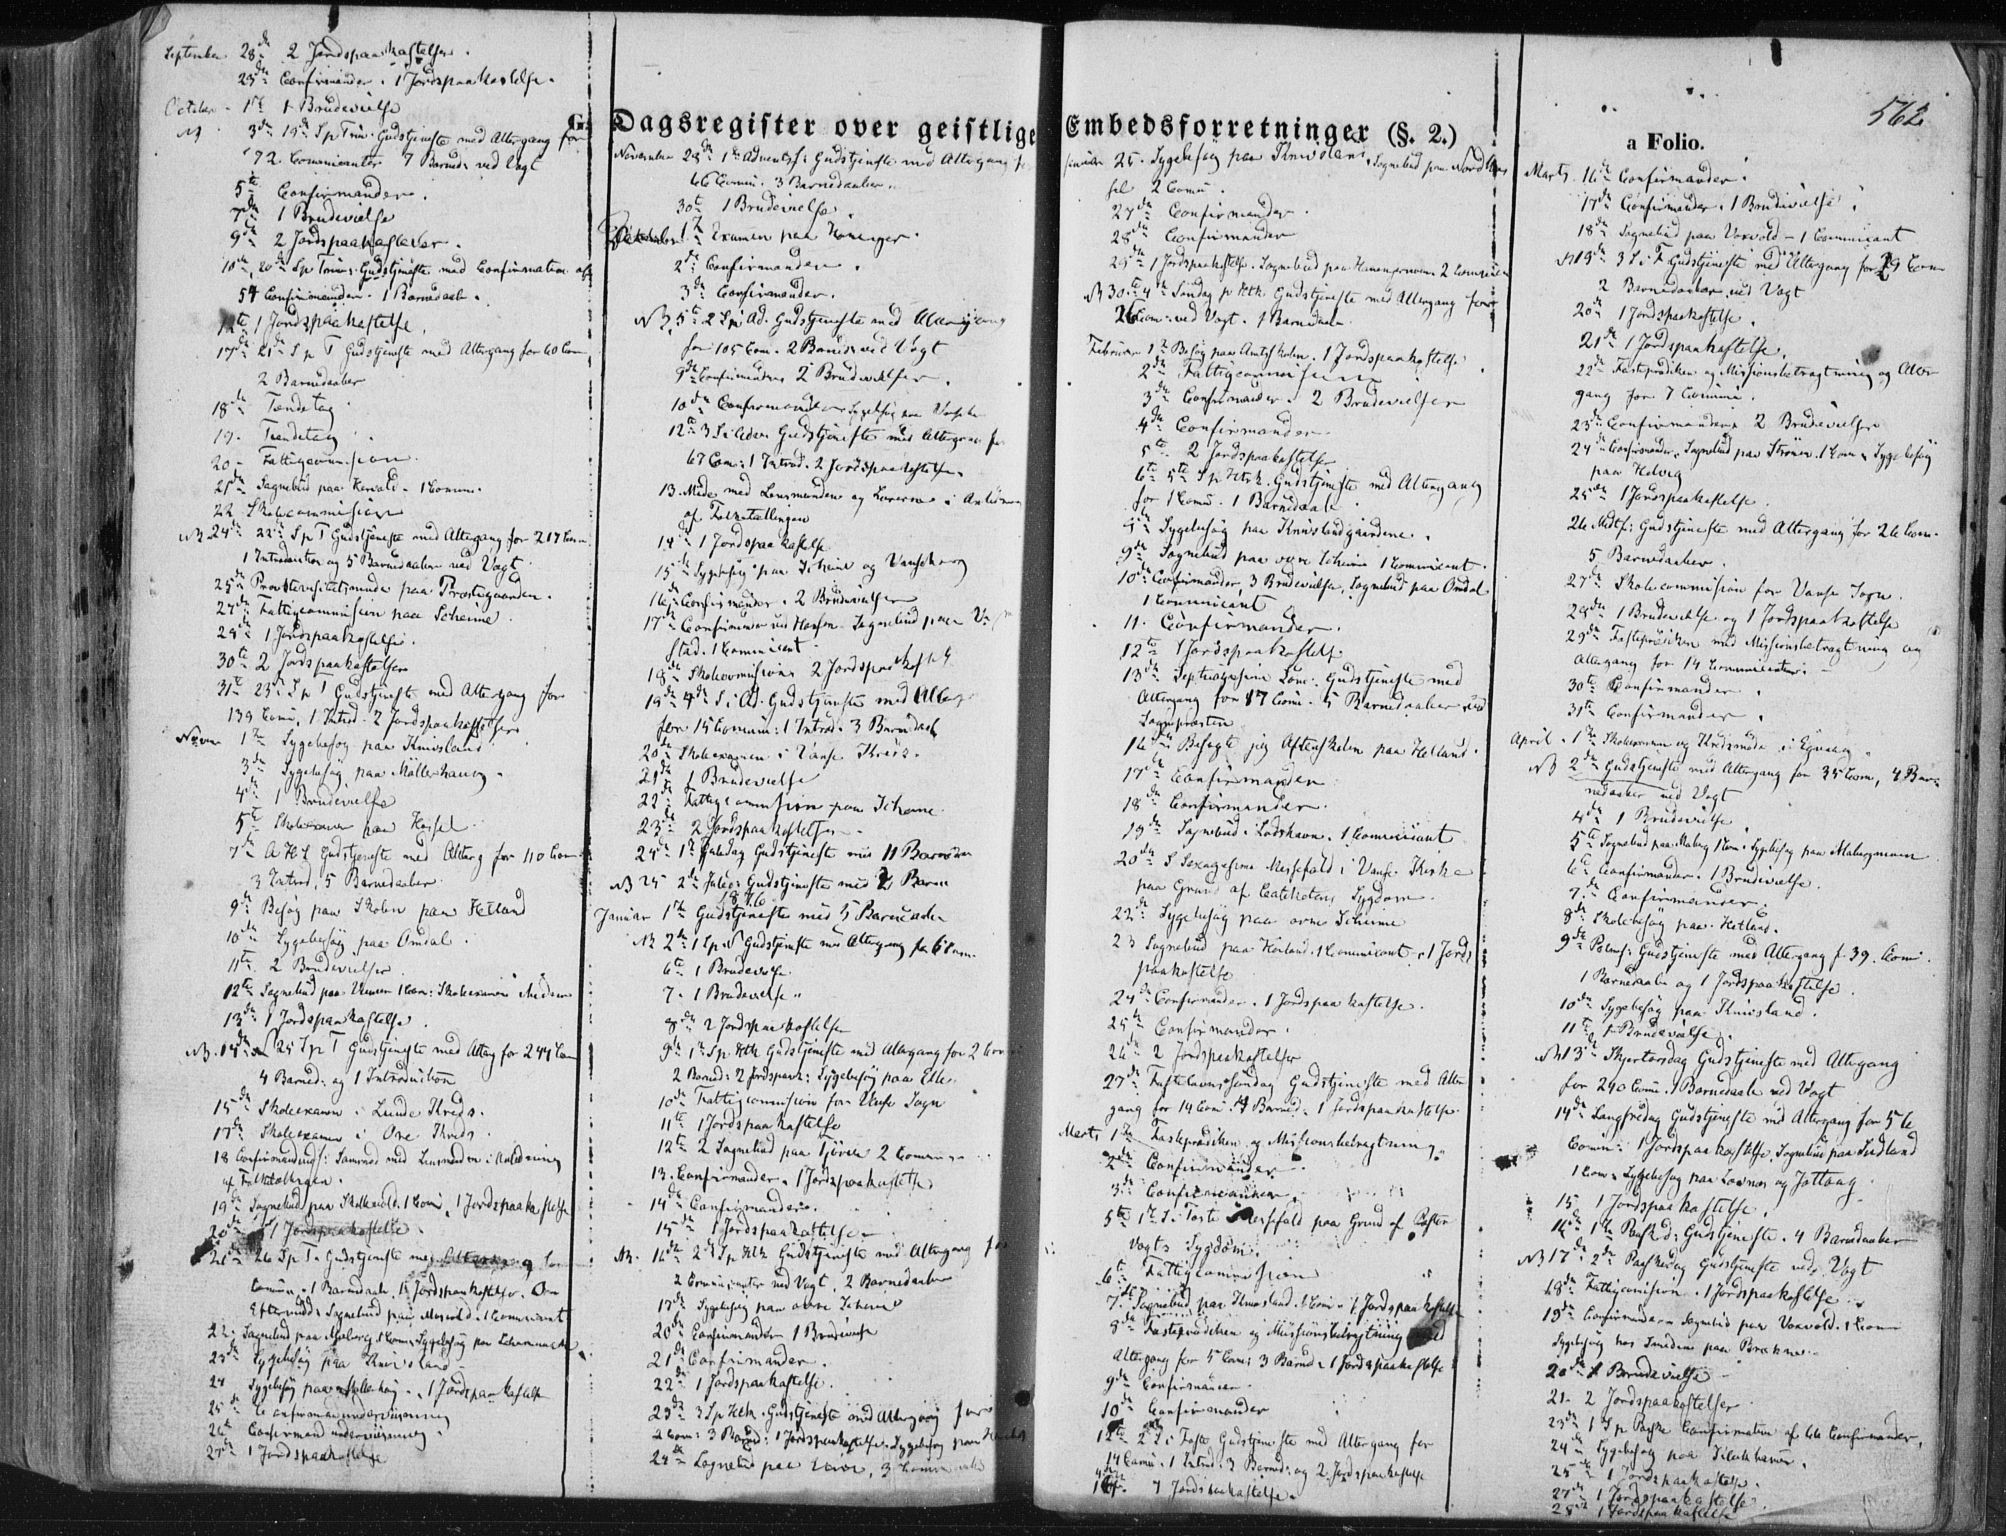 562
G. Dagsregister over geistlige Embedsforretninger (§. 2.)
a Folio.
September 28de 2 Jordspaakastelser.
29de Confirmander. 1 Jordspaakastelse.
October 1ste 1 Brudevielse
3die 19de S p Trin. Gudstjeneste med Altergang for
72 Communicanter 7 Barned. ved Vogt
5te Confirmander.
7de 1 Brudevielse
9de 2 Jordspaakastelser.
10de 20de S p Trin. Gudstjeneste med Confirmation af
54 Confirmander. 1 Barnedaab.
12te 1 Jordspaakastelse.
17de 21de S p T Gudstjeneste med Altergang for 60 Com
2 Barnedaaber
18de Tendetag
19. Tiendetag
20 Fattigcommission
21de Sognebud paa 1 Comm.
22 Skolecommission
NB 24de 22de S p T Gudstjeneste med Altergang for 217 Com
1 Introduction og 5 Barnedaaber ved Vogt.
25de paa Præstegaarden.
27de Fattigcommission paa Scheime.
28de 1 Jordspaakastelse.
30te 2 Jordspaakastelser
31te 23de S p T Gudstjeneste med Altergang for
139 Comm. 1 Introd. 2 Jordspaakastelser
Novem 1ste Sygebesøg paa Knivsland
3de Sygebesøg paa Møllerhaug.
4de 1 Brudevielse
5te Skoleexamen paa
7de A H S Gudstjeneste med Alterg for 110 Com
3 Introd. 5 Barnedaaber
9de Besøg paa Skolen paa Hetland
10de Sygebesøg paa Omdal.
11te 2 Brudevielser
12te Sognebud paa 1 Com: Skoleexamen i
13de 1 Jordspaakastelse.
NB. 14de 25 S p T Gudstjeneste med Alterg for 244 Com
4 Barned. og 1 Introduction
15de Skoleexamen i Lunde Kreds.
17de Skoleexamen i Ore Kreds.
18 Samraad med Lensmanden i Anledning
af Folketællingen.
19de Sognebud paa 1 Com. 1 Jordspaakastelse
20de 1 Jordspaakastelse.
26 S p T. Gudstjeneste med
Comm. 1 Barnedaab. 1 Jordspaakastelse. Om
Eftermidd: Sognebud paa 1 Communicant
22. Sognebud paa 1 Com. Sygebesøg paa
23de Sygebesøg paa Knivsland
24 Sygebesøg paa Møllerhaug. 1 Jordspaakastelse
25de Confirmandundervisning
26de Confirmandundervisning.
27de 1 Jordspaakastelse
November 28de 1ste Adventss: Gudstjeneste med Altergang for
66 Comm. 3 Barnedaaber.
30te 1 Brudevielse.
December 1ste Examen paa
2den Confirmander.
3de Confirmander.
NB 5te 2 S i Ad. Gudstjeneste med Altergang
for 105 Com. 2 Barned. ved Vogt
9de Confirmander 2 Brudevielser.
10de Confirmander Sygebesøg paa
12te 3 S i Adv. Gudstjeneste med Altergang for
67 Com: 1 Introd. 2 Jordspaakastelser.
13. Møde med Lensmanden og Lærerne i Anledning
af Folketællingen
14de 1 Jordspaakastelse
15de Sygebesøg paa Scheime og Vanshaug
16de Confirmander. 2 Brudevielser
17de Sognebud paa
stad. 1 Communicant.
18de Skolecommission 2 Jordspaakastelser
19de 4de S i Ad. Gudstjeneste med Alterg
for 15 Comm: 1 Introd. 3 Barnedaab
20de Skoleexamen i Vanse Kreds.
21de 1 Brudevielse
22de Fattigcommission paa Scheime.
23de 2 Jordspaakastelser.
24de 1ste Juledag Gudstjeneste med 11 Barned
NB 25 2de Juled: Gudstjeneste med 2 Barned
1876
Januar 1ste Gudstjeneste med 5 Barnedaaber
NB 2de 1 S p N Gudstjeneste med Altergang for 6 Comm.
6te 1 Brudevielse
7. 1 Brudevielse
8de 2 Jordspaakastelser
9de 1ste S p. Htk Gudstjeneste med Altergang for 2 Com
2 Barned: 2 Jordspaak: Sygebesøg paa
10de Fattigcommission for Vanse Sogn
11te 1 Jordspaakastelse
12te 2 Sognebud paa Tjørve 2 Commun
13. Confirmander. 1 Jordspaakastelse
14de Confirmander.
15de 1 Jordspaakastelse
NB. 16de 2de S p Htk Gudstjeneste med Altergang for
2 Communicanter ved Vogt. 2 Barnedaaber
17de Sygebesøg paa øvre Scheime
20de Confirmander 1 Brudevielse
21de Confirmander.
22de 1 Jordspaakastelse.
23de 3 S p Htk. Gudstjeneste med Altergang for
2 Com: 3 Barned: 1 Jordspaakastelse. Sygebesøg paa
24de Sognebud paa 3 Comm
Januar 25. Sygebesøg paa Knivsland, Sognebud paa
2 Comm.
27de Confirmander.
28de Confirmander
29de 1 Jordspaakastelse. Sognebud paa 2 Commun
NB 30te 4de Søndag p Htk Gudstjeneste med Altergang for
26 Com: ved Vogt. 1 Barnedaab
Februar 1ste Besøg paa Amtsskolen. 1 Jordspaakastelse
2de Fattigcommission
3de Confirmander. 2 Brudevielser
4de Confirmander.
5te 2 Jordspaakastelser
6te 5te S p Htk. Gudstjeneste med Altergang
for 1 Comm. 1 Barnedaab
Sygebesøg paa Knivslandgaardene.
9de Sognebud paa øvre Scheime 1 Communicant.
10de Confirmander, 3 Brudevielser, Sognebud paa Omdal
1 Communicant
11. Confirmander.
12te 1 Jordspaakastelse
13de Septuagesima Sønd: Gudstjeneste med
Altergang for 17 Comm. 5 Barnedaaber ved
Sognepræsten
16de Besøgte jeg Aftenskolen paa Hetland.
17de Confirmander
18de Confirmander.
19de Sognebud. Lodshavn. 1 Communicant
20de S Sexagesima Messefald i Vanse Kirke
paa Grund af Catechetens Sygdom.
22de Sygebesøg paa øvre Scheime
23 Sognebud paa 1 Communicant. 1 Jords
paakastelse
24de Confirmander. 1 Jordspaakastelse.
25de Confirmander.
26de 2 Jordspaakastelser
27de Fastelavnssøndag Gudstjeneste med Alter
gang for 14 Com. 4 Barned. 1 Jordspaakastelse
Marts 1ste Fasteprædiken og Missionsbetragtning.
2de Confirmander.
3de Confirmander.
5te 1ste S i Faste Messefald paa Grund af Pastor
Vogts Sygdom.
6te Fattigcommission
7de Sognebud paa Knivsland. 1 Com. 1 Jordspaakastelse
8de Fasteprædiken og Missionsbetragtning med
Altergang for 5 Com: 3 Barned. 1 Jordspaakastelse
9de Confirmander
10de Confirmander
12te 2 S i Faste Gudstjeneste med Altergang for
14 Comm. 1 Introd. 3 Barned: og 2 Jordspaakastelse
1 Jordspaakastelse.
Marts 16de Confirmander.
17de Confirmander. 1 Brudevielse.
18de Sognebud paa Vorvold – 1 Communicant
NB 19de 3 S i F Gudstjeneste med Altergang for 29 Com
2 Barnedaaber ved Vogt
20de 1 Jordspaakastelse.
21de 1 Jordspaakastelse.
22de Fasteprædiken og Missionsbetragtning og Alter
gang for 7 Commun.
23de Confirmander 2 Brudevielser
24de Confirmander, Sognebud paa Strømen. 1 Com. Sygebesøg
paa Helvig
25de 1 Jordspaakastelse.
26 Midtf: Gudstjeneste med Altergang for 26 Com.
5 Barnedaaber.
27de Skolecommission for Vanse Sogn.
28de 1 Brudevielse og 1 Jordspaakastelse
29de Fasteprædiken med Missionsbetragtning og
Altergang for 14 Communicanter.
30te Confirmander.
31te Confirmander.
April. 1ste Skoleexamen og Kredsmøde i
NB 2de Gudstjeneste med Altergang for 35 Com, 4 Bar
nedaaber ved Vogt
4de 1 Brudevielse
5te Sognebud paa Maberg 1 Com. Sygebesøg paa Mabergmoen
6te Confirmander. 1 Brudevielse.
7de Confirmander.
8de Skolebesøg paa Hetland.
9de Palmes: Gudstjeneste med Altergang f. 39. Comm.
1 Barnedaab og 1 Jordspaakastelse.
10de Sygebesøg paa Knivsland.
11te 1 Brudevielse.
NB 13de Skjertorsdag Gudstjeneste med Altergang
for 240 Comm. 1 Barnedaab ved Vogt
14de Langfredag Gudstjeneste med Altergang for 56
Comm: 1 Jordspaakastelse. Sognebud paa Sudland
1 Com. Sygebesøg paa og
15. 1 Jordspaakastelse.
16de 1ste Paaskd: Gudstjeneste. 4 Barnedaaber
NB 17de 2de Paaskedag Gudstjeneste ved Vogt
18de Fattigcommission. 1 Jordspaakastelse
19de Confirmander Sognebud paa Vorvold. 1 Com
Sygebesøg hos Smeden paa
20de 1 Brudevielse
21. 2 Jordspaakastelser
23de 1 S p Paaske Confirmation af 66 Confirmander,
24de Sygebesøg paa
25de 1 Jordspaakastelse.
27de 1 Jordspaakastelse
28de 1 Jordspaakastelse